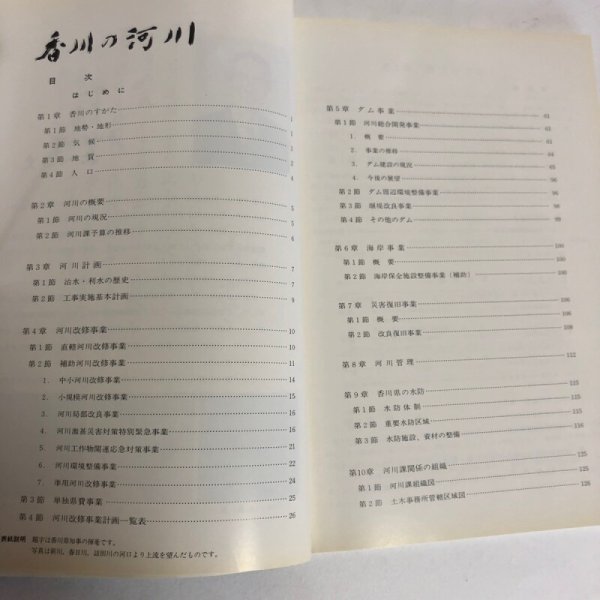 香川の河川
目次
はじめに
第1章 香川のすがた 1
第1節 地勢・地形 1
第2節 気候
第3節 地質
第4節 人口
第2章 河川の概要 5
第1節 河川の現況 5
第2節 河川課予算の推移 6
第3章 河川計画 7
第1節 治水・利水の歴史 7
第2節 工事実施基本計画 9
第4章 河川改修事業 10
第1節 直轄河川改修事業 10
第2節 補助河川改修事業 11
1. 中小河川改修事業 14
2. 小規模河川改修事業 15
3. 河川局部改良事業 16
4. 河川激甚災害対策特別緊急事業 16
5. 河川工作物関連応急対策事業 21
6. 河川環境整備事業 22
7. 準用河川改修事業 24
第3節 単独県費事業 25
第4節 河川改修事業計画一覧表 26
表紙説明 題字は香川県知事の揮毫です。
写真は新川、春日川、詰田川の河口より上流を望んだものです。
第5章 ダム事業 61
第1節 河川総合開発事業 61
1. 概要
2. 事業の推移
3. ダム建設の現況
4. 今後の展望 96
第2節 ダム周辺環境整備事業 96
第3節 堰堤改良事業 98
第4節 その他のダム 99
第6章 海岸事業 100
第1節 概要 100
第2節 海岸保全施設整備事業〔補助〕
第7章 災害復旧事業 106
第1節 概要 106
第2節 改良復旧事業 108
第8章 河川管理 112
第9章 香川県の水防 115
第1節 水防体制 115
第2節 重要水防区域 115
第3節 水防施設、資材の整備
第10章 河川課関係の組織 125
第1節 河川課組織図 125
第2節 土木事務所管轄区域図 126